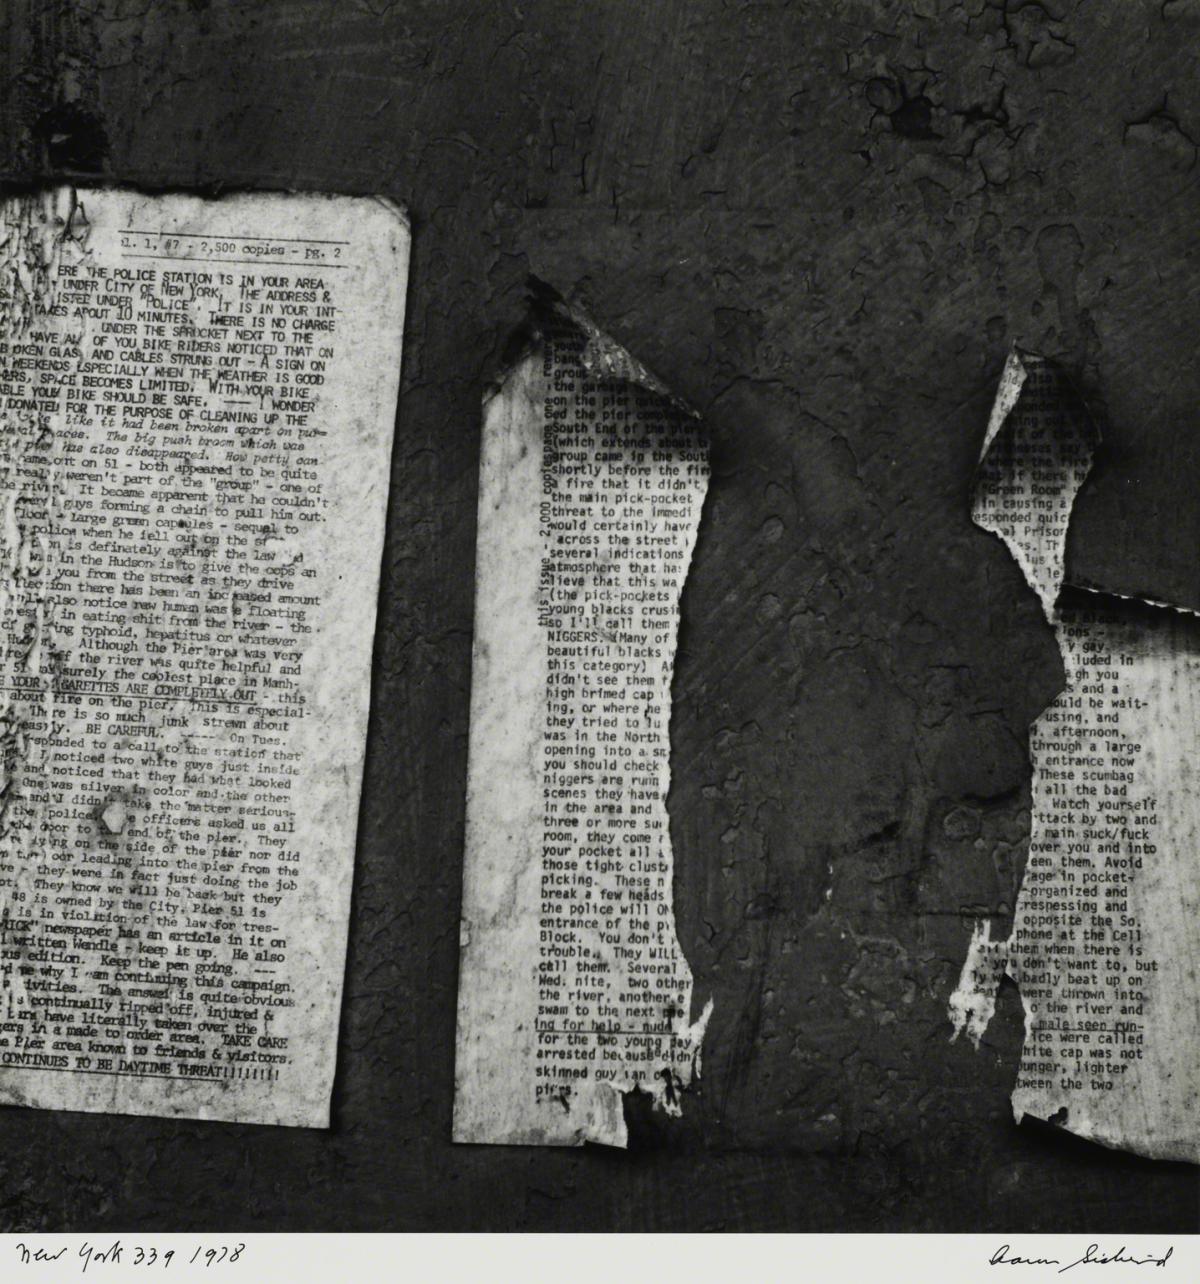 1. 1, #7 - 2,500 copies - pg. 2
ERE THE POLICE STATION IS IN YOUR AREA
UNDER CITY OF NEW YORK, THE ADDRESS &
ISTED UNDER "POLICE". IT IS IN YOUR INT-
TAKES ABOUT 10 MINUTES. THERE IS NO CHARGE
UNDER THE SPROCKET NEXT TO THE
HAVE ANY OF YOU BIKE RIDERS NOTICED THAT ON
BROKEN GLASS AND CABLES STRUNG OUT - A SIGN ON
N WEEKENDS ESPECIALLY WHEN THE WEATHER IS GOOD
HERS, SPACE BECOMES LIMITED. WITH YOUR BIKE
ABLE YOUR BIKE SHOULD BE SAFE. ---- I WONDER
DONATED FOR THE PURPOSE OF CLEANING UP THE
like it had been broken apart on pur-
aces. The big push broom which was
has also disappeared. How petty can
came out on 51 - both appeared to be quite
really weren't part of the "group" - one of
he river. It became apparent that he couldn't
guys forming a chain to pull him out.
floor - large green capsules - sequel to
police when he fell out on the st
on is definately against the law
in the Hudson is to give the cops an
you from the street as they drive
llection there has been an increased amount
also notice raw human waste floating
in eating shit from the river - the
typhoid, hepatitus or whatever
Although the Pier area was very
off the river was quite helpful and
51 surely the coolest place in Manh-
YOUR CIGARETTES ARE COMPLETELY OUT - this
about fire on the pier. This is especial-
There is so much junk strewn about
easily. BE CAREFUL. ----- On Tues.
sponded to a call to the station that
I noticed two white guys just inside
and noticed that they had what looked
One was silver in color and the other
and I didn't take the matter serious-
the police. officers asked us all
door to end of the pier. They
lying on the side of the pier nor did
door leading into the pier from the
ve - they were in fact just doing the job
ot. They know we will be back but they
48 is owned by the City. Pier 51 is
is in violation of the law for tres-
newspaper has an article in it on
written Wendle - keep it up. He also
ous edition. Keep the pen going. ---
me why I am continuing this campaign.
ivities. The answer is quite obvious
continually ripped off, injured &
have literally taken over the
gers in a made to order area. TAKE CARE
e Pier area known to friends & visitors.
CONTINUES TO BE DAYTIME THREAT!!!!!!!!
this issue - 2,000 copies
grou
the garbage
on the pier quick
ed the pier comple
South End of the pier
(which extends about
group came in the Sout
shortly before the fir
fire that it didn't
the main pick-pocket
threat to the immedi
would certainly have
across the street
several indications
atmosphere that ha
lieve that this wa
(the pick-pockets
young blacks crusi
so I'll call them
NIGGERS. (Many of
beautiful blacks
this category) A
didn't see them
high brimed cap
ing, or where he
they tried to lu
was in the North
opening into a sm
you should check
niggers are runn
scenes they have
in the area and
three or more su
room, they come
your pocket all
those tight clust
picking. These n
break a few heads
the police will ON
entrance of the pi
Block. You don't
trouble. They WILL
call them. Several
Wed. nite, two other
the river, another
swam to the next pie
ing for help - nude
for the two young gay
arrested because didn
skinned guy ran
piers.
where the fire
if there
"Green Room"
in causing a
esponded quic
al Prison
es. Th
lus
le
ions -
y gay
luded in
gh you
s and a
ould be wait-
using, and
. afternoon,
through a large
h entrance now
These scumbag
all the bad
Watch yourself
ttack by two and
main suck/fuck
over you and into
een them. Avoid
age in pocket-
-organized and
respessing and
opposite the So.
phone at the Cell
them when there is
you don't want to, but
badly beat up on
were thrown into
o the river and
male seen run-
ice were called
hite cap was not
ounger, lighter
tween the two
New York 339 1978
Aaron Siskind